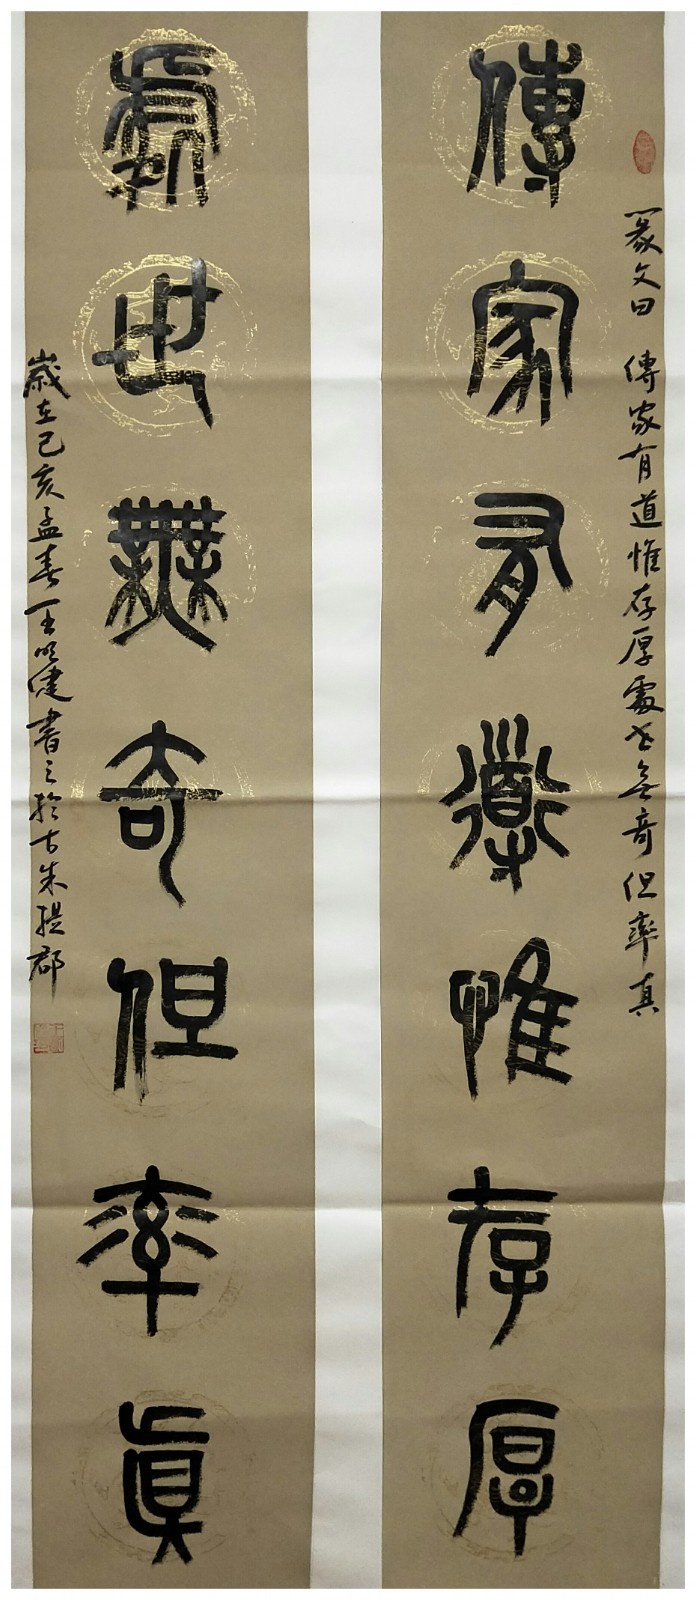 篆文曰 傳家有道惟存厚處世無奇但率真
傳家有道惟存厚
處世無奇但率真
歲在己亥孟春王明健書之於古朱提郡